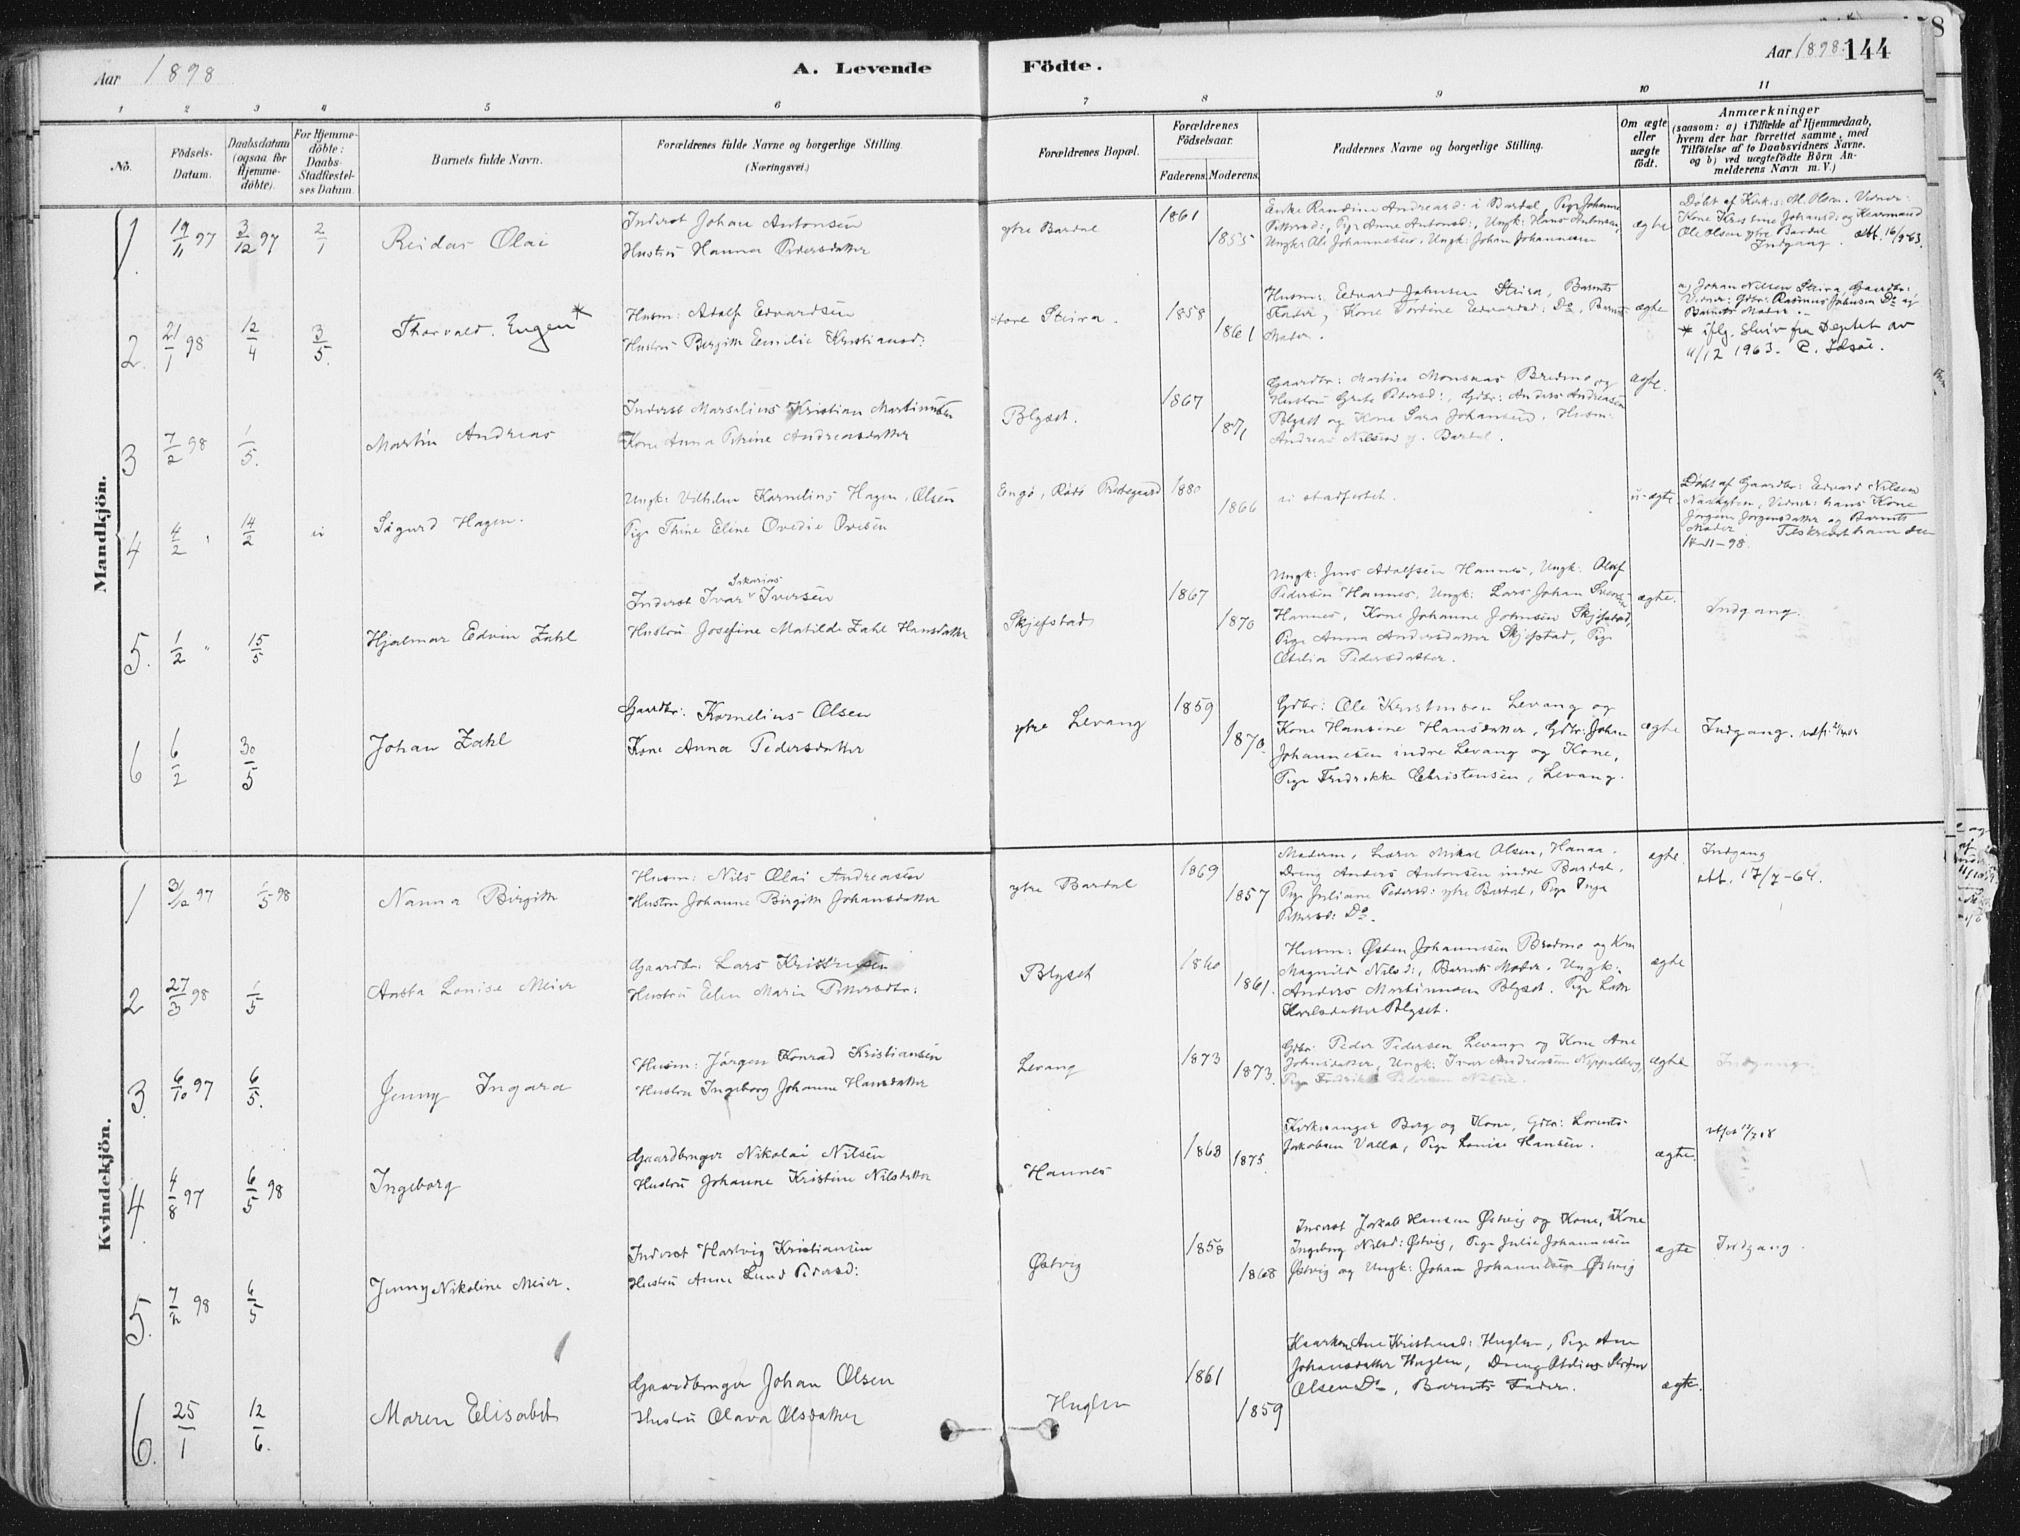 Aar 1898
A. Levende
Födte.
Aar 1898.
144
1 2 3 4 5 6 7 8 9 10 11
No.
Födsels-
Datum.
Daabsdatum
(ogsaa for
Hjemme-
döbte).
For Hjemme-
döbte:
Daabs-
Stadfæstel-
ses Datum.
Barnets fulde Navn.
Forældrenes fulde Navne og borgerlige Stilling.
(Næringsvei.)
Forældrenes Bopæl.
Forældrenes
Födselsaar.
Faderens. Moderens.
Faddernes Navne og borgerlige Stilling.
Om ægte
eller
uægte
födt.
Anmærkninger
(saasom: a) i Tilfælde af Hjemmedaab,
hvem der har forrettet samme, med
Tilföielse af to Daabsvidners Navne.
og b) ved uægtefödte Börn An-
melderens Navn m. V.)
Mandkjön.
1. 19/11 97 3/12 97 2/1 Reidar Olai
Inderst Johan Antonsen
Hustru Hanna Pedersdatter
ytre Bardal 1861 1855
Enke Randine Andreasd: i Bardal, Pige Johanne
Pettersd:, Pige Anne Antonsd:, Ungk: Hans Antonsen,
Ungkr Ole Johannesen, Ungk: Johan Johannesen
ægte
Døbt af Kirkes: M. Olsen. Vidner:
Kone Kristine Johansd: og Kaarmand
Ole Olsen ytre Bardal
Indgang. att. 16/9-63.
2. 21/1 98 12/4 3/5. Thorvald. Engen*
Husm: Adolf Edvardsen
Hustru Bergitte Emilie Kristiansd:
store Steira. 1858 1861
Husm: Edvard Johnsen Steira, Barnets
Fader, Kone Tordine Edvardsd: Do, Barnets
Moder.
ægte
a) Johan Nilsen Steira, Gaardbr:,
Vidner: Gdbr: Rasmus Johnsen Do og
Barnets Moder.
* iflg. skriv fra Deptet av
11/12 1963. E. Idsøe.
3 7/2 98 1/5. Martin Andreas
Inderst Marselius Kristian Martinusen
Kone Anna Petrine Andreasdatter
Blyset. 1867 1871
Gaardbr: Martin Monsnas Bredmo og
Hustru Grete Petersd:, Gdbr: Anders Andreasen
Blyset og Kone Sara Johansen, Husm:
Andreas Nilsen y. Bardal.
ægte.
4 4/2 " 14/2 ei Sigurd Hagen.
Ungk: Vilhelm Kornelius Hagen, Olsen
Pige Thine Eline Ovedie Ovesen
Engø, Rødø Prestegjæld 1880 1866
ei stadfestet.
u-ægte
Døbt af Gaardbr: Edvard Nilsen
Vidner: hans Kone
Jørgine Jørgensdatter og Barnets
Moder
14-11-98.
5. 1/2 " 15/5 Hjalmar Edvin Zahl
Sakarias
Inderst Ivar v Iversen
Hustru Josefine Matilde Zahl Hansdatter
Skjefstad 1867 1870
Ungk: Jens Adolfsen Hannes, Ungk: Olaf
Pedersen Hannes, Ungk: Lars Johan Svensen
Hannes, Kone Johanne Johnsen Skjefstad,
Pige Anna Andersdatter Skjefstad, Pige
Otelia Pedersdatter.
ægte.
Indgang.
6 6/2 30/5 Johan Zahl
Gaardbr: Kornelius Olsen
Kone Anna Pedersdatter
ytre Levang 1859 1870.
Gdbr: Ole Kristensen Levang og
Kone Hansine Hansdatter, Gdbr: Johan
Johannesen indre Levang og Kone,
Pige Fredrikke Christensen, Levang.
ægte
Indgang.
Kvindekjön.
1 31/12 97 1/5 98 Nanna Birgitte
Husm: Nils Olai Andreassen
Hustru Johanne Birgitte Johansdatter
ytre Bardal 1869 1857
Moderen, Lærer Mikal Olsen, Hanna.
Dreng Anders Antonsen indre Bardal,
Pige Juliane Pedersd: ytre Bardal, Pige Inga
Pettersd: Do.
ægte.
Indgang
att. 17/7-64.
2 27/3 98 1/5 Aasta Lovise Meier
Gaardbr: Lars Kristensen
Hustru Elen Maria Pettersdtr:
Blyset 1860 1861.
Husm: Østen Johannesen Bredmo og Kone
Magnild Nilsd:, Barnets Moder. Ungk:
Anders Martinusen Blyset. Pige
Blyset.
ægte
3. 6/10 97 6/5. Jenny Ingara
Husm: Jørgen Konrad Kristiansen
Hustru Ingeborg Johanne Hansdatter
Levang 1873 1873.
Gdbr: Peder Pedersen Levang og Kone Ane
Johnsdatter, Ungk: Ivar Andreasen
Pige Fredrik Pedersen
ægte
Indgang.
4. 4/8 97 6/5 98 Ingeborg
Gaardbruger Nikolai Nilsen
Hustru Johanne Kristine Nilsdatter
Hannes 1863 1875.
Kirkesanger Berg og Kone, Gdbr: Lorents
Jakobsen Valla, Pige Lovise Hansen.
ægte.
5. 7/2 98 6/5 Jenny Nikoline Meier.
Inderst Hartvig Kristiansen
Hustru Anne Lund Pedersd:
Østvig 1858 1868
Inderst Jakob Hansen Østvig og Kone, Kone
Ingeborg Nilsd: Østvig, Pige Julie Johannesen
Østvig og Ungk: Johan Johannesen Østvig
ægte
Indgang.
6. 25/1 12/6. Maren Elisabet
Gaardbruger Johan Olsen
Hustru Olava Olsdatter
Huglen 1861 1859
Ane Kristensd: Huglen, Pige Ane
Johansdatter Huglen, Dreng
Olsen Do, Barnets Fader.
ægte.